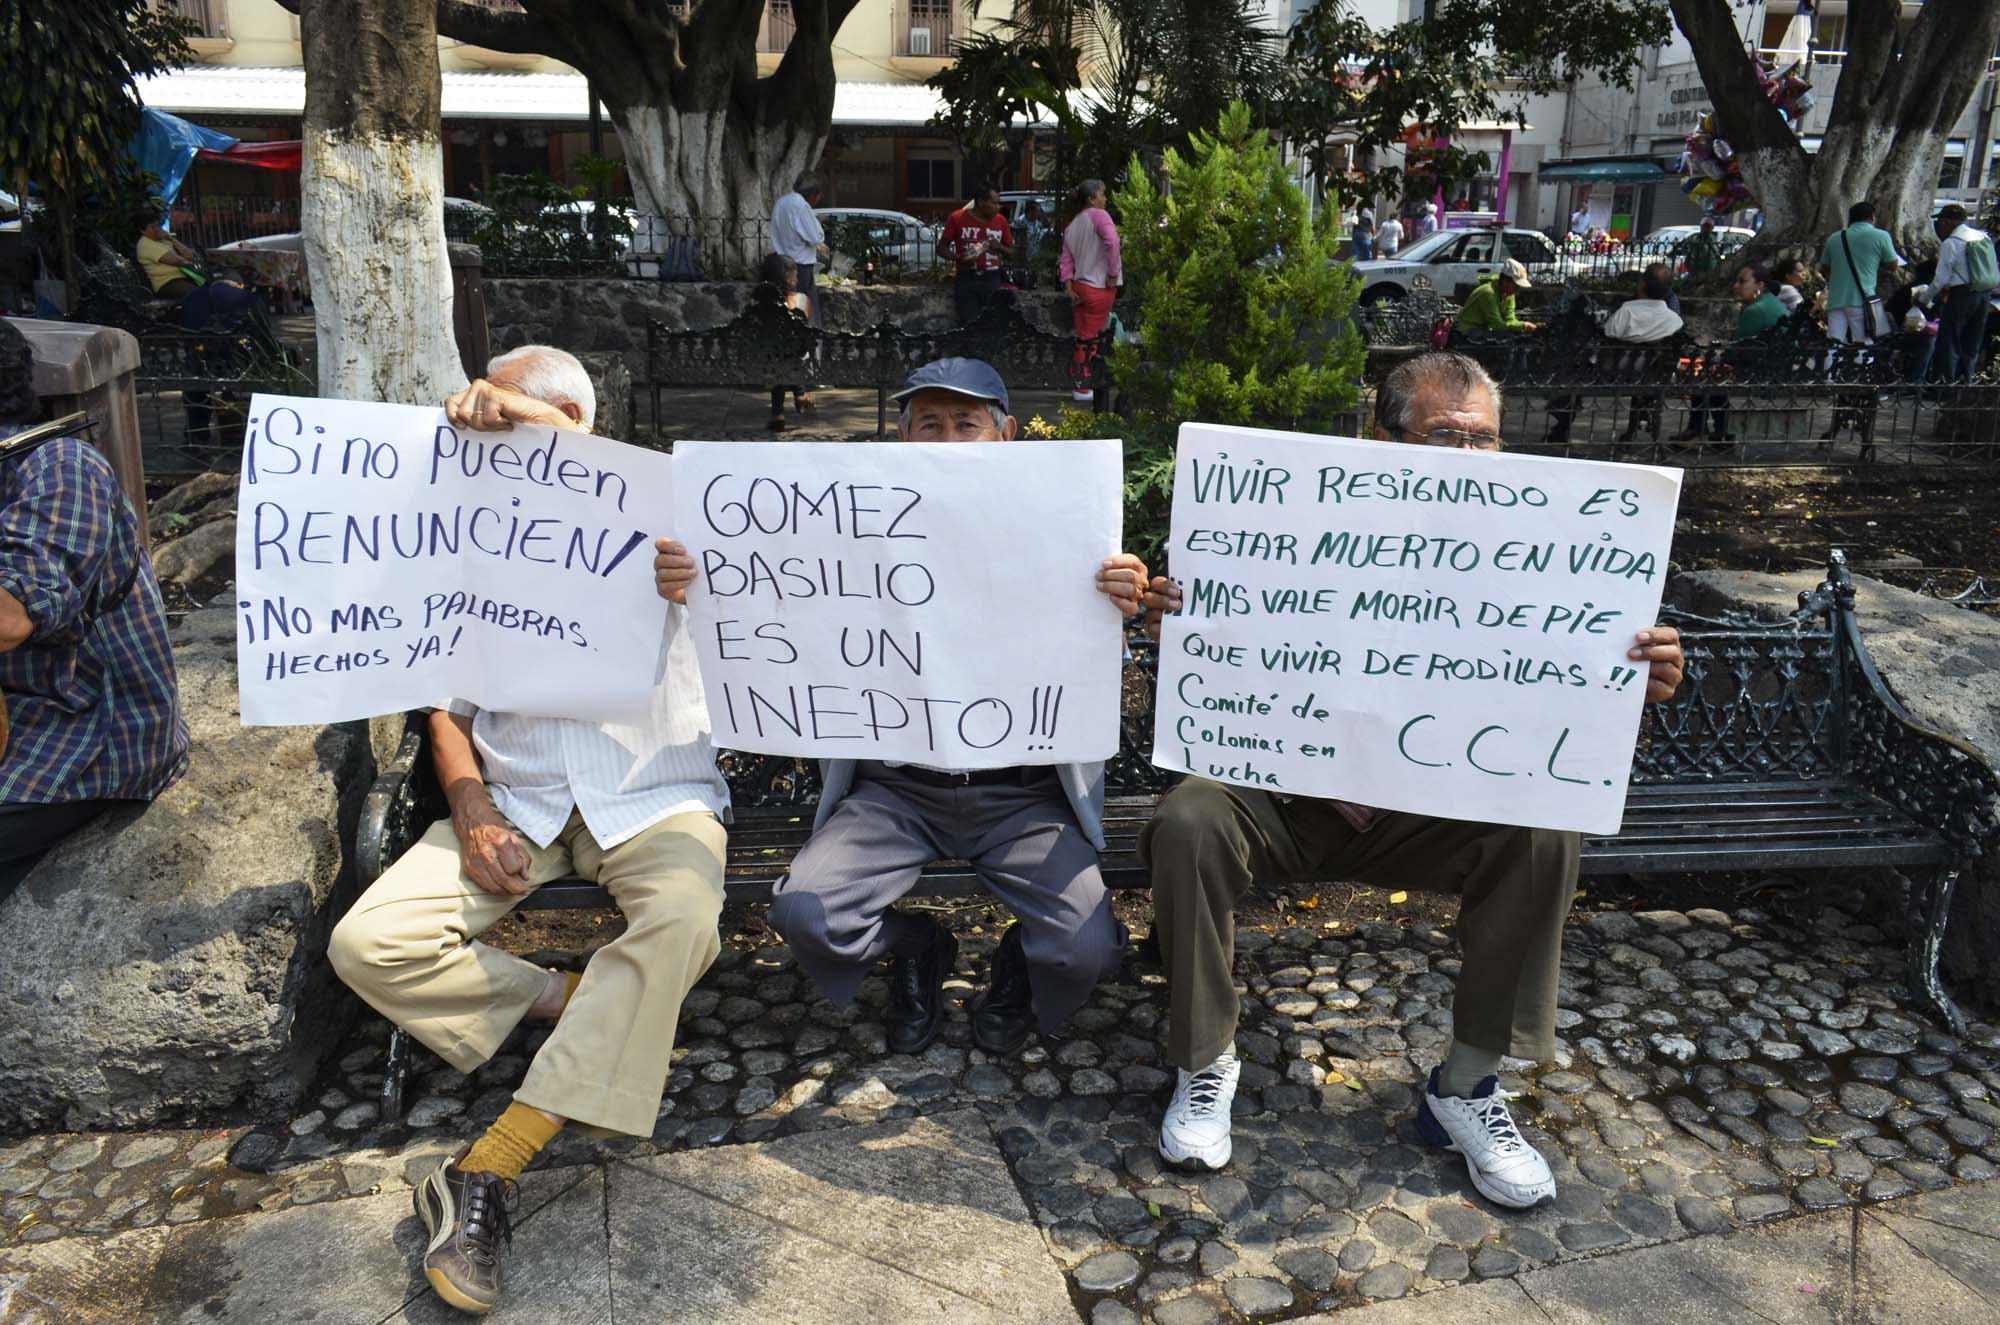 ¡Si no pueden
RENUNCIEN!
¡NO MAS PALABRAS.
HECHOS YA!
GOMEZ
BASILIO
ES UN
INEPTO!!!
VIVIR RESIGNADO ES
ESTAR MUERTO EN VIDA
¡¡MAS VALE MORIR DE PIE
QUE VIVIR DE RODILLAS!!
Comité de
Colonias en
Lucha
C.C.L.
NY
00195
CENTRO